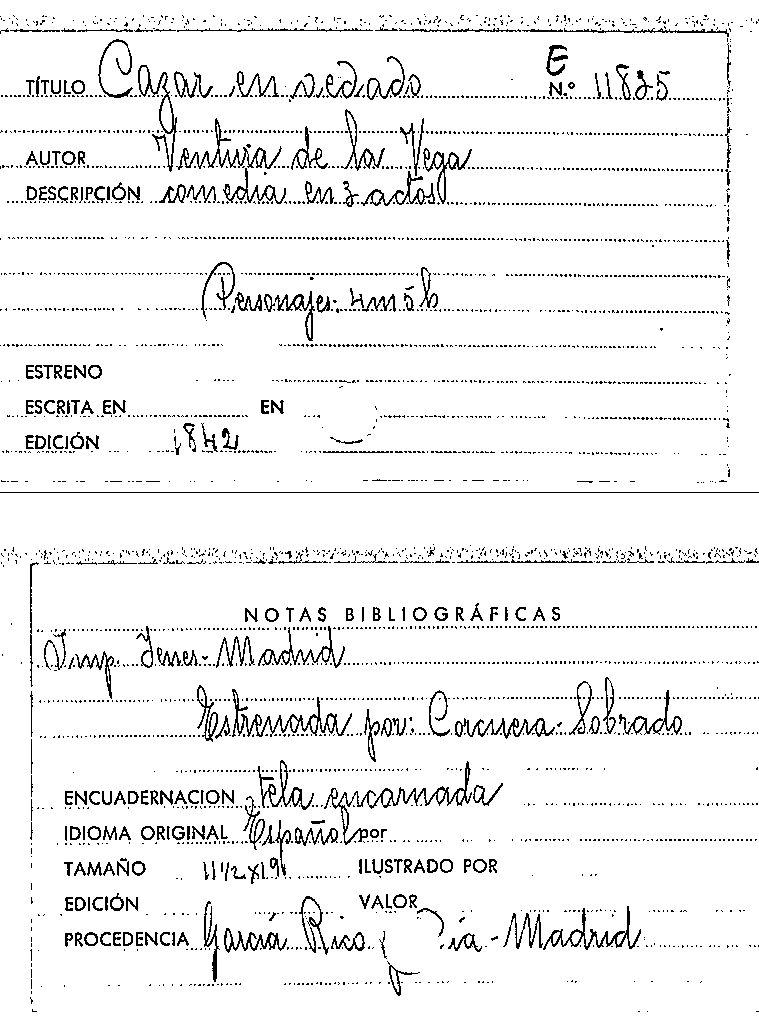 TÍTULO Cazar en vedado E N.º 11825
AUTOR Ventura de la Vega
DESCRIPCIÓN comedia en 3 actos
Personajes: 4m 5h
ESTRENO
ESCRITA EN EN
EDICIÓN 1842
NOTAS BIBLIOGRÁFICAS
Imp. Yenes-Madrid
Estrenada por: Corcuera-Sobrado
ENCUADERNACION tela encarnada
IDIOMA ORIGINAL Español por
TAMAÑO 11 1/2 x 19 ILUSTRADO POR
EDICIÓN VALOR
PROCEDENCIA García Rico y Cía - Madrid